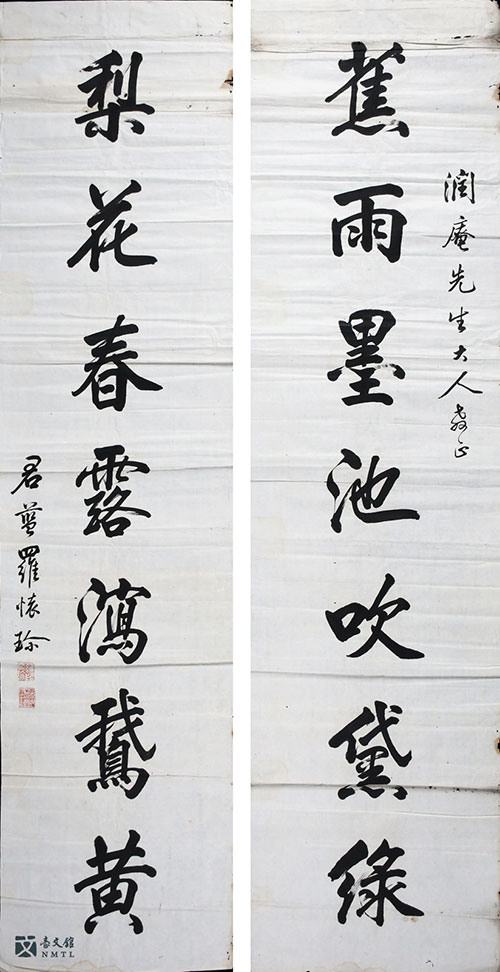 潤庵先生大人教正
蕉雨墨池吹黛綠
梨花春露瀉鵝黃
君藍羅懷珍
臺文館
NMTL